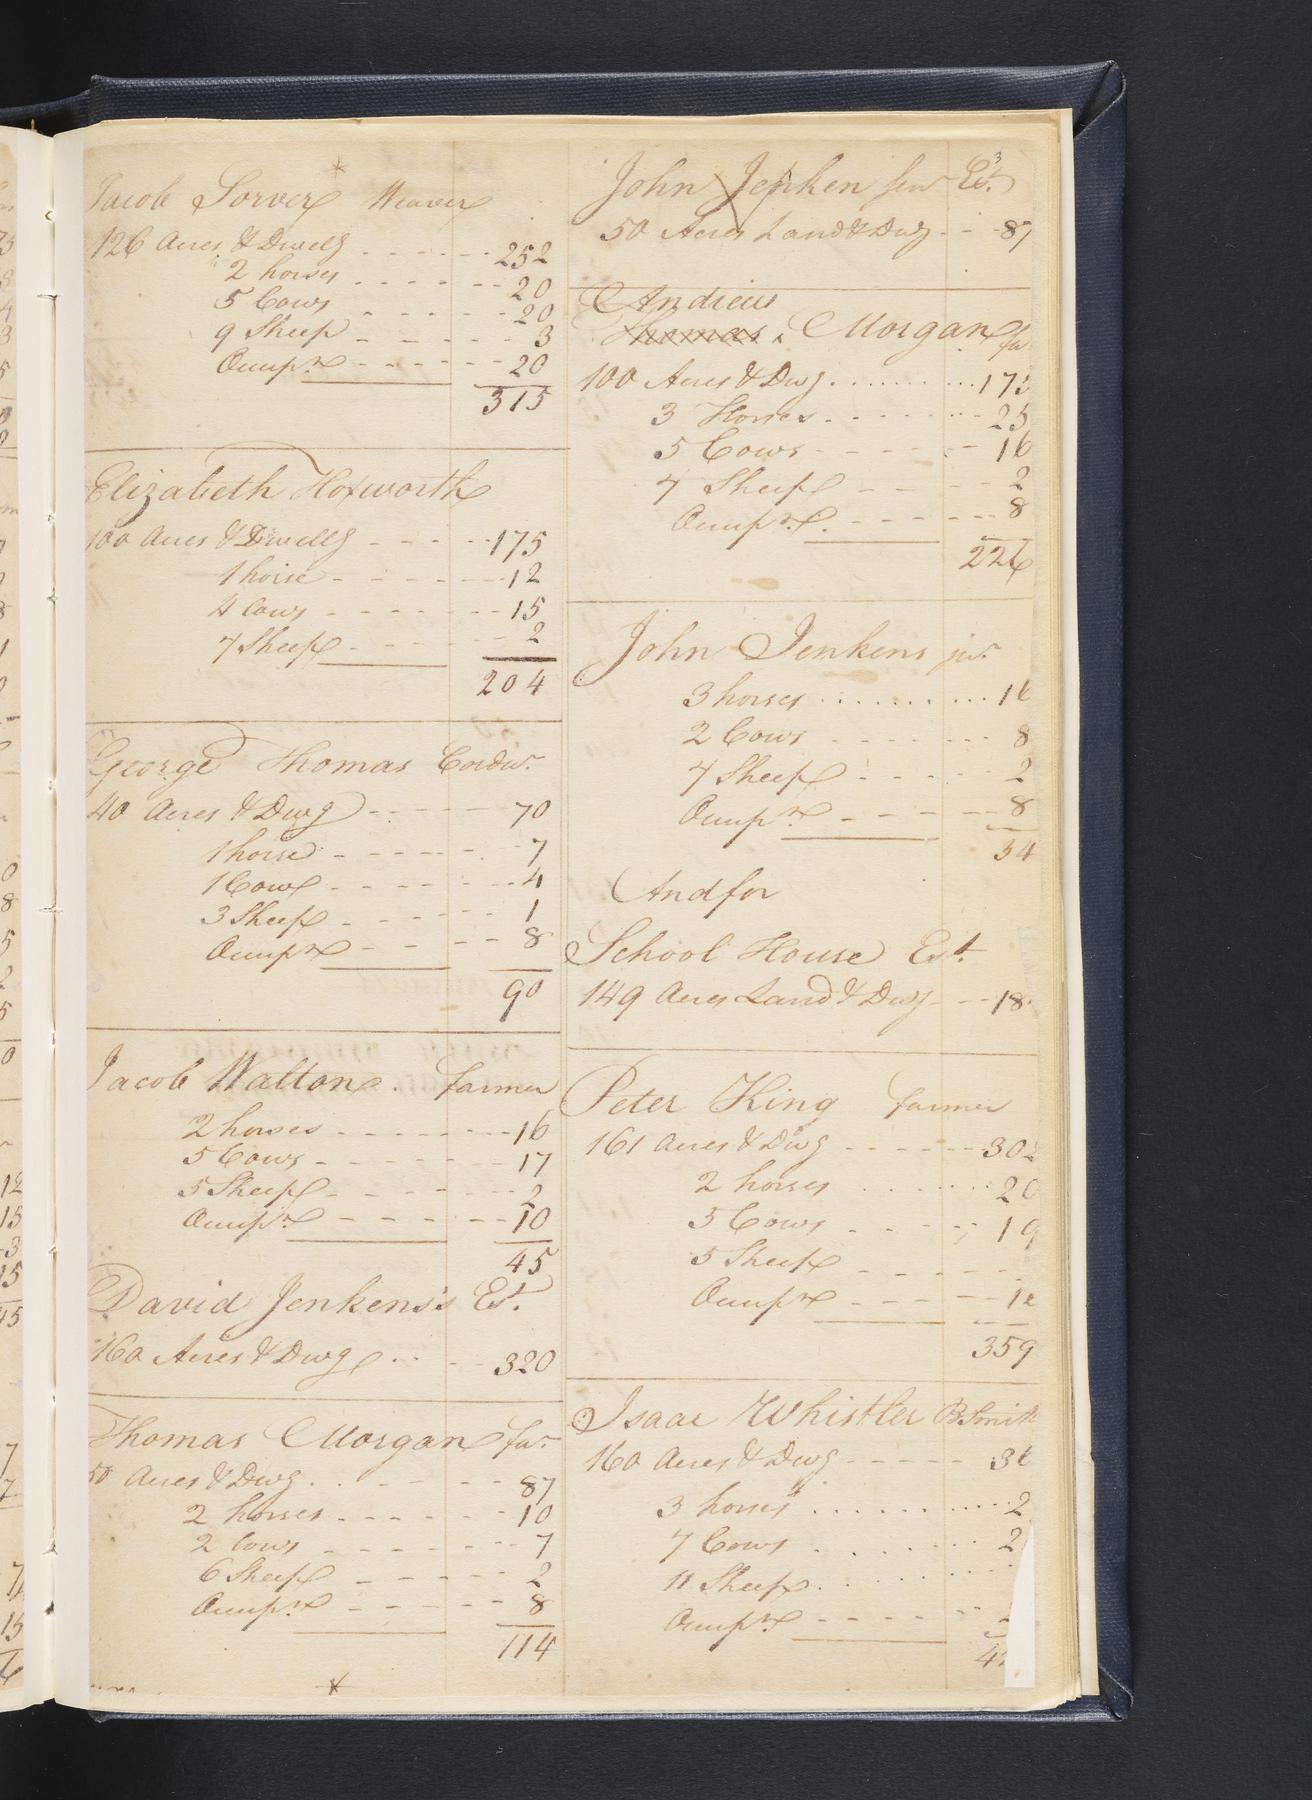 Jacob Sorver Weaver
126 Acres & Dwellg 252
2 horses 20
5 Cows 20
9 Sheep 3
Occupn 20
315
Elizabeth Hoxworth
100 Acres & Dwellg 175
1 horse 12
4 Cows 15
7 Sheep 2
204
George Thomas Cordwr
40 Acres & Dwg 70
1 horse 7
1 Cow 4
3 Sheep 1
Occupn 8
90
Jacob Walton farmer
2 horses 16
5 Cows 17
5 Sheep 2
Occupn 10
45
David Jenkens's Est.
160 Acres & Dwg 320
Thomas Morgan far
50 Acres & Dwg 87
2 horses 10
2 Cows 7
6 Sheep 2
Occupn 8
114
3
John Jenken senr Est.
50 Acres Land & Dwg 87
Andrew
Thomas Morgan fa
100 Acres & Dwg 175
3 Horses 25
5 Cows 16
7 Sheep 2
Occupn 8
226
John Jenkens jur
3 horses 16
2 Cows 8
7 Sheep 2
Occupn 8
34
And for
School House Est.
149 Acres Land & Dwg 18
Peter King farmer
161 Acres & Dwg 302
2 horses 20
5 Cows 19
5 Sheep
Occupn 1
359
Isaac Whistler B.Smith
160 Acres & Dwg 3
3 horses 2
7 Cows 2
11 Sheep
Occupn
4